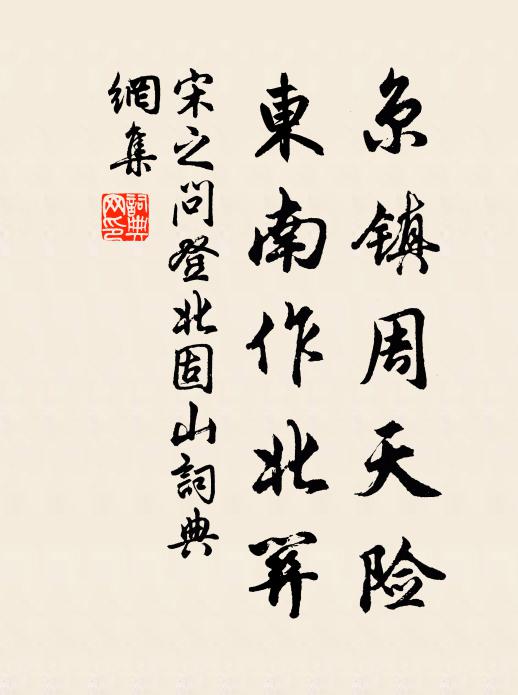 京镇周天险
東南作北關
宋之问登北固山詞典
網集
詞典网印